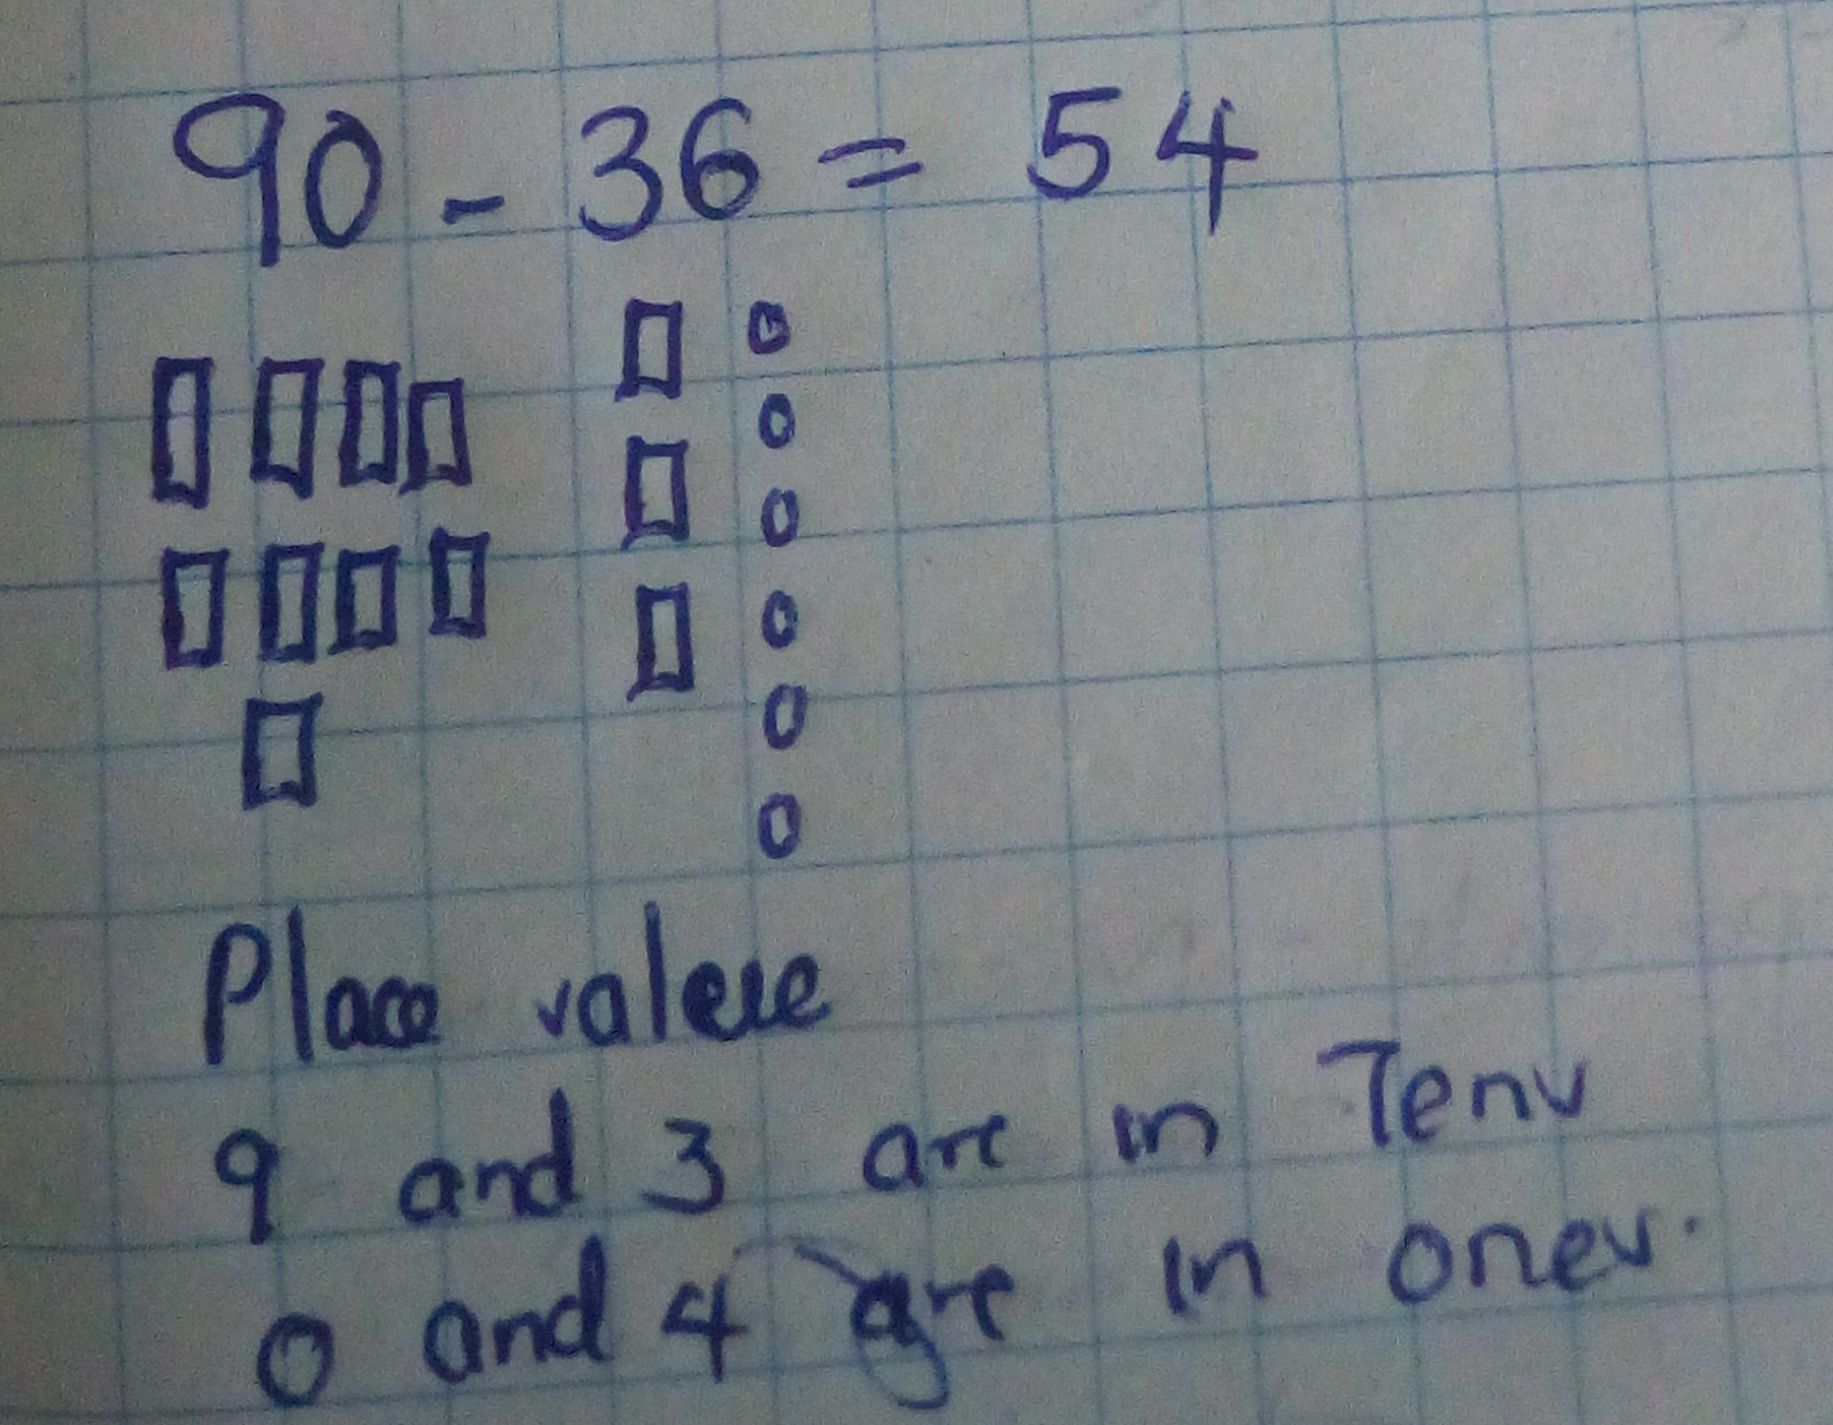 90 - 36 = 54
Place value
9 and 3 are in Tens
0 and 4 are in ones.